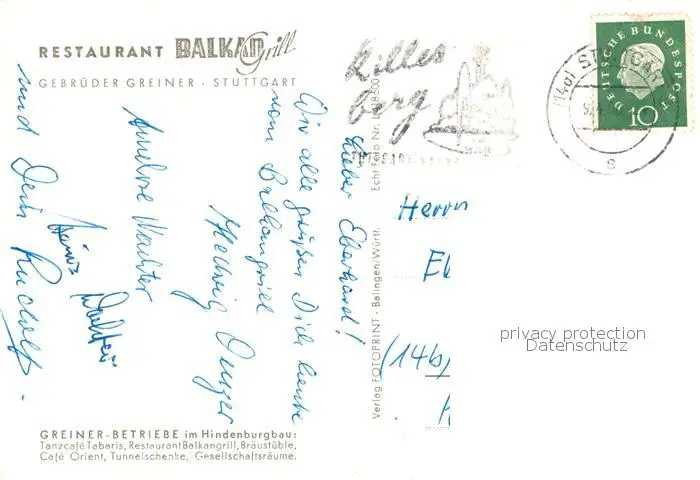 RESTAURANT BALKAN Grill
GEBRÜDER GREINER · STUTTGART
Killes
berg
(14a) STUTTGART
DEUTSCHE BUNDESPOST
10
e
Lieber Eberhard!
Wir alle grüßen Dich heute
vom Balkangrill
Hedwig Unger
Annelise Wachter
Heinz Walter
und Dein Rudolf.
Echt Foto Nr.
Verlag FOTOPRINT · Balingen/Württ.
Herrn
(14b)
privacy protection
Datenschutz
GREINER-BETRIEBE im Hindenburgbau:
Tanzcafé Tabaris, Restaurant Balkangrill, Bräustüble,
Café Orient, Tunnelschenke, Gesellschaftsräume.